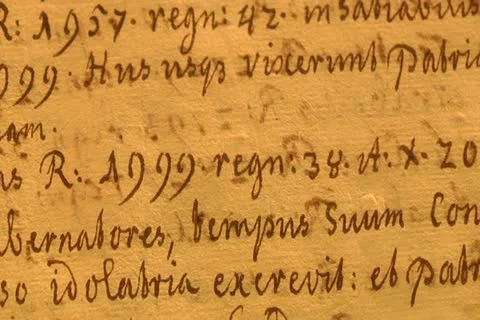 R: 1957. regn: 42. in
999. Hus usqs vixerunt Patri
am.
R: 1999. regn: 38. A: X. 20
bernatores, tempus Suum Con
so idolatria exerevit: et Patr